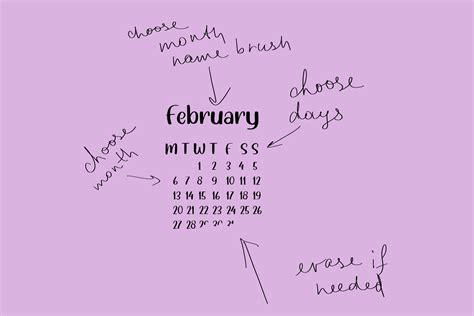 choose
month
name brush
choose
days
choose
month
february
M T W T F S S
1 2 3 4 5
6 7 8 9 10 11 12
13 14 15 16 17 18 19
20 21 22 23 24 25 26
27 28
erase if
needed